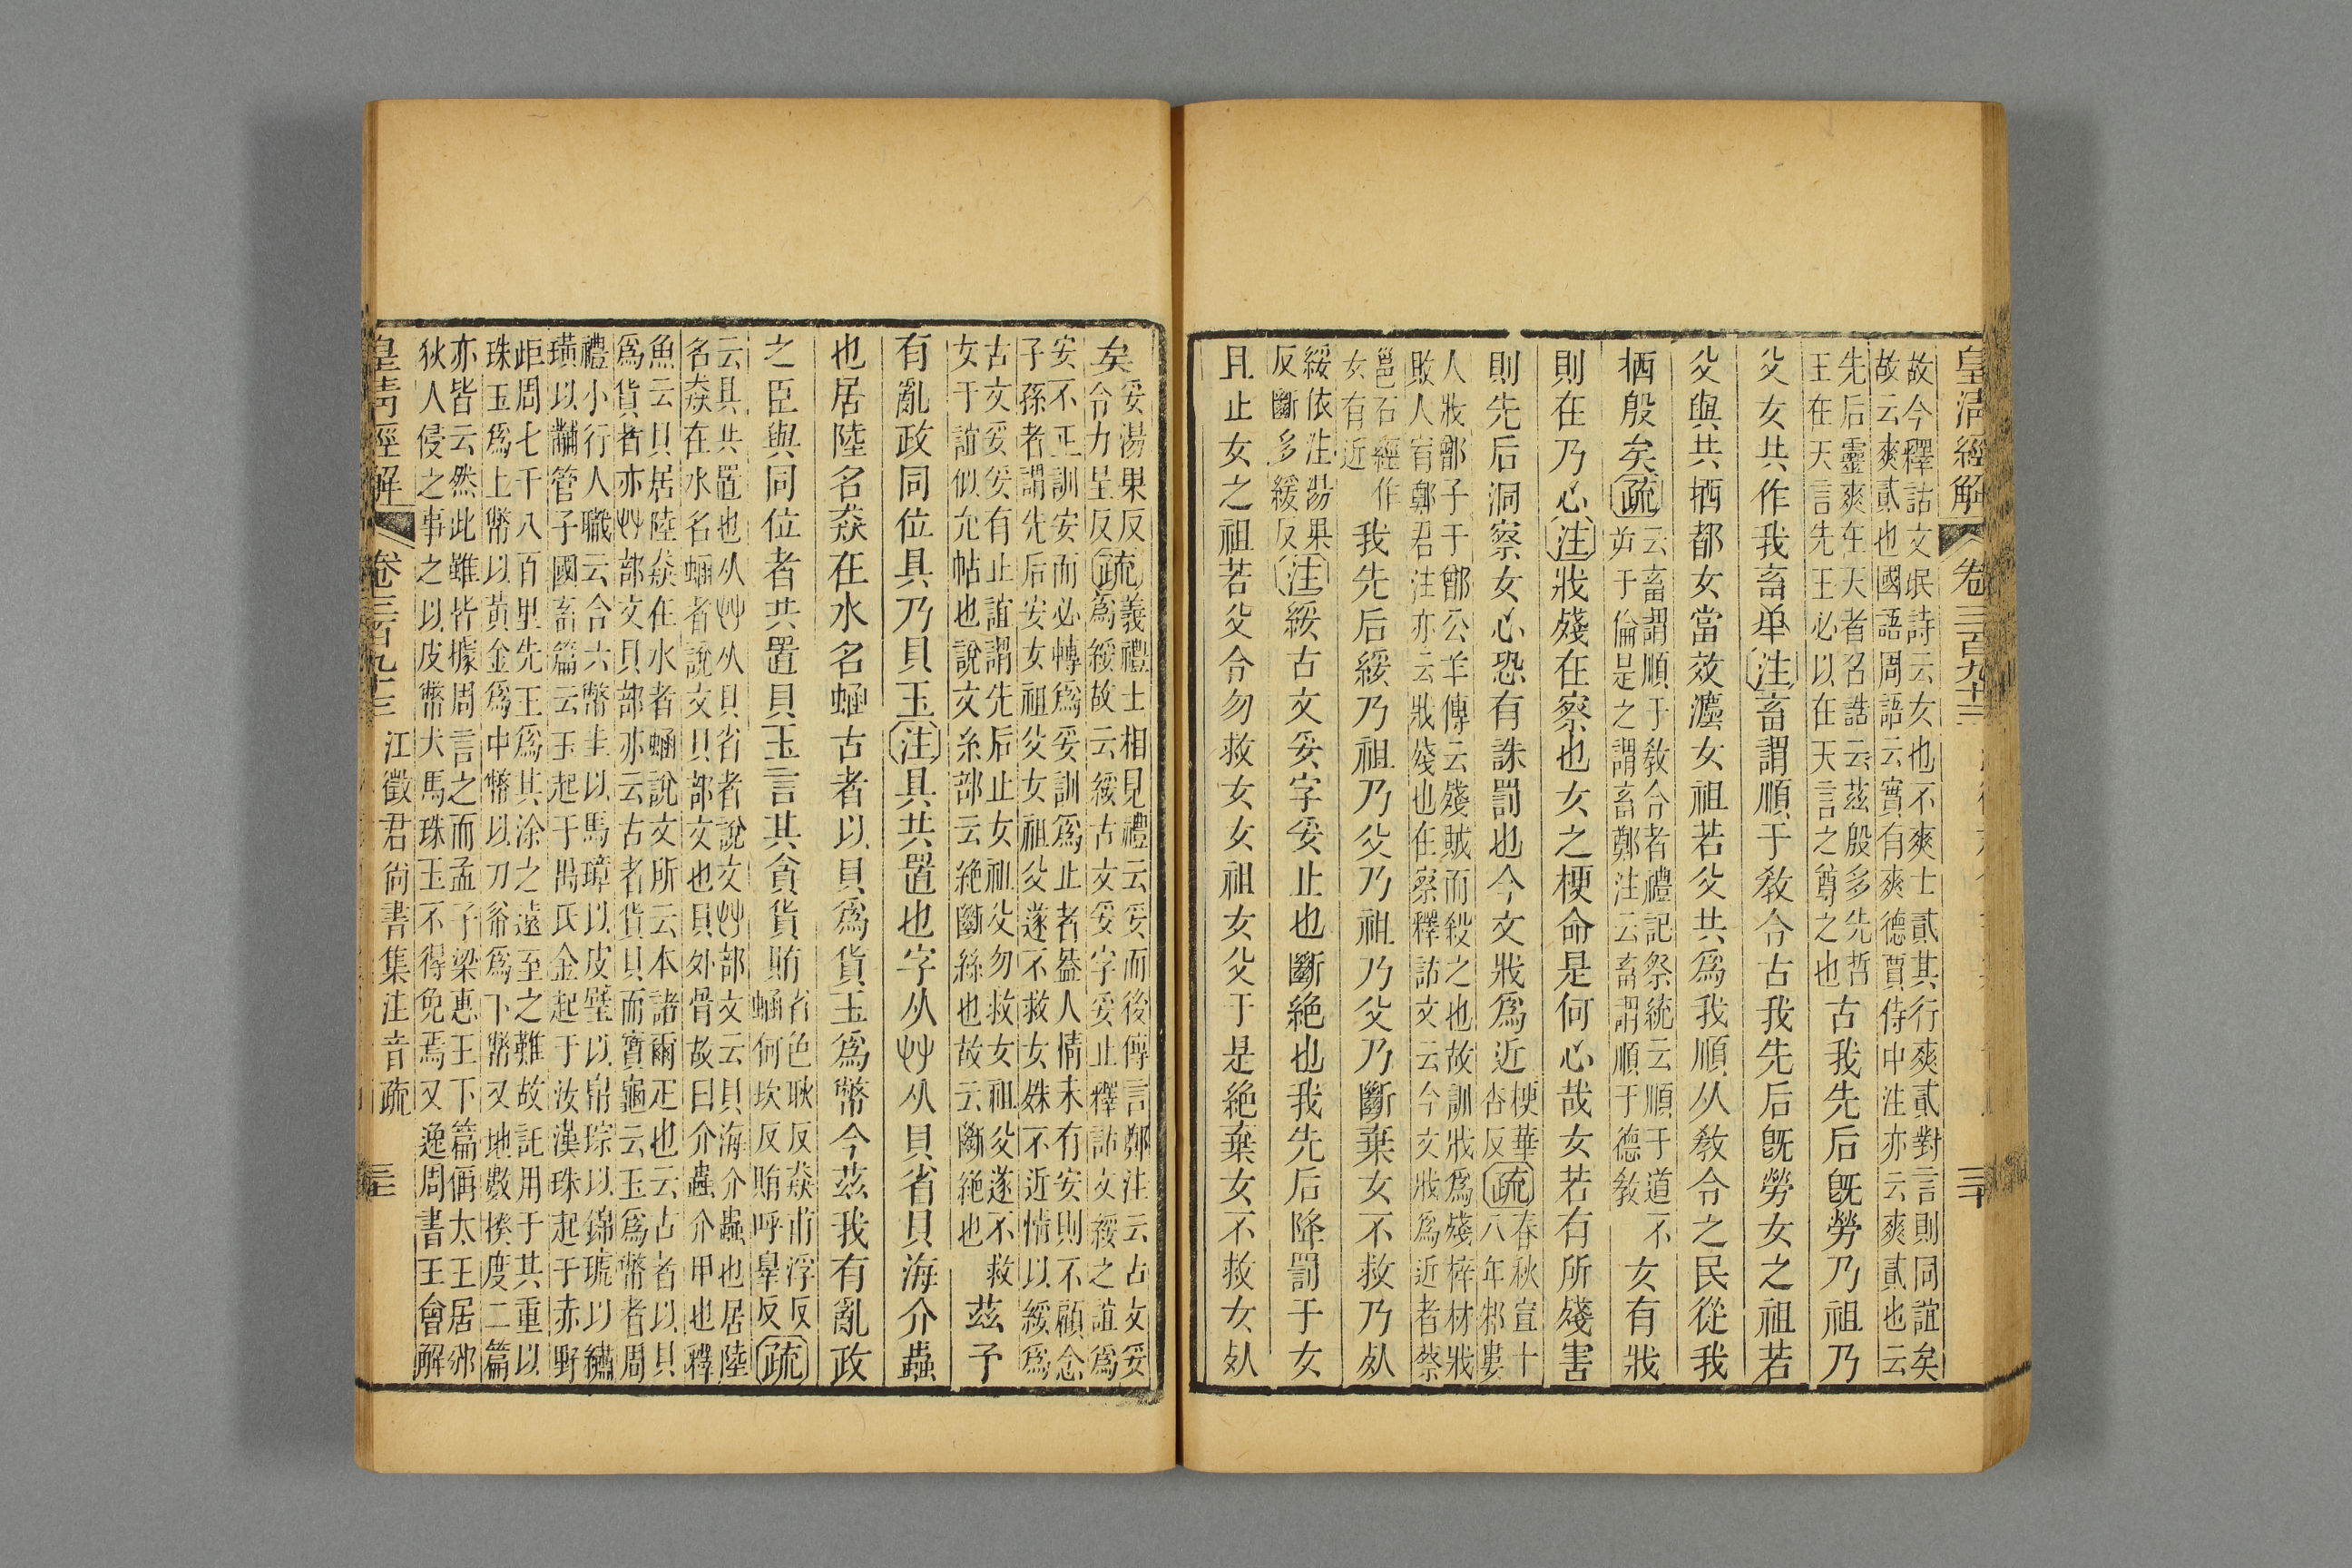 皇清經解 卷三百九十三 三十
故今釋詁文氓詩云女也不爽士貳其行爽貳對言則同誼矣
故云爽貳也國語周語云實有爽德賈侍中注亦云爽貳也云
先后靈爽在天者召誥云茲殷多先哲
王在天言先王必以在天言之尊之也
古我先后旣勞乃祖乃
父女共作我畜𠦒注畜謂順于教令古我先后旣勞女之祖若
父與共栖都女當效灋女祖若父共爲我順从教令之民從我
栖殷矣疏
云畜謂順于教令者禮記祭統云順于道不
㐫于倫是之謂畜鄭注云畜謂順于德教
女有戕
則在乃心注戕殘在察也女之梗命是何心哉女若有所殘害
則先后洞察女心恐有誅罰也今文戕爲近
梗華
杏反
疏
春秋宣十
八年邾婁
人戕鄫子于鄫公羊傳云殘賊而殺之也故訓戕爲殘梓材戕
敗人宥鄭君注亦云戕殘也在察釋詁文云今文戕爲近者蔡
邕石經作
女有近
我先后綏乃祖乃父乃祖乃父乃斷棄女不救乃𣦸
綏依注湯果
反斷多緩反
注綏古文妥字妥止也斷絕也我先后降罰于女
且止女之祖若父令勿救女女祖女父于是絕棄女不救女𣦸
矣
妥湯果反
令力呈反
疏
義禮士相見禮云妥而後傳言鄭注云古文妥
爲綏故云綏古文妥字妥止釋詁文綏之誼爲
安不正訓安而必轉爲妥訓爲止者葢人情未有安則不顧念
子孫者謂先后安女祖父女祖父遂不救女姝不近情以綏爲
古文妥妥有止誼謂先后止女祖父勿救女祖父遂不救
女于誼似允帖也說文糸部云絶斷絲也故云斷絶也
茲予
有亂政同位具乃貝玉注具共置也字从廾从貝省貝海介蟲
也居陸名猋在水名蜬古者以貝爲貨玉爲幣今茲我有亂政
之臣與同位者共置貝玉言其貪貨賄
省色耿反猋甫浮反
蜬何坎反賄呼辠反
疏
云具共置也从廾从貝省者說文廾部文云貝海介蟲也居陸
名猋在水名蜬者說文貝部文也貝外骨故曰介蟲介甲也釋
魚云貝居陸猋在水者蜬說文所云本諸爾疋也云古者以貝
爲貨者亦廾部文貝部亦云古者貨貝而寶龜云玉爲幣者周
禮小行人職云合六幣圭以馬璋以皮璧以帛琮以錦琥以繡
璜以黼管子國畜篇云玉起于禺氏金起于汝漢珠起于赤野
歫周七千八百里先王爲其涂之遠至之難故託用于其重以
珠玉爲上幣以黃金爲中幣以刀㡀爲下幣又地數揆度二篇
亦皆云然此雖皆據周言之而孟子梁惠王下篇偁太王居邠
狄人侵之事之以皮幣犬馬珠玉不得免焉又逸周書王會解
皇清經解 卷三百九十三 江徵君尙書集注音疏 三十一